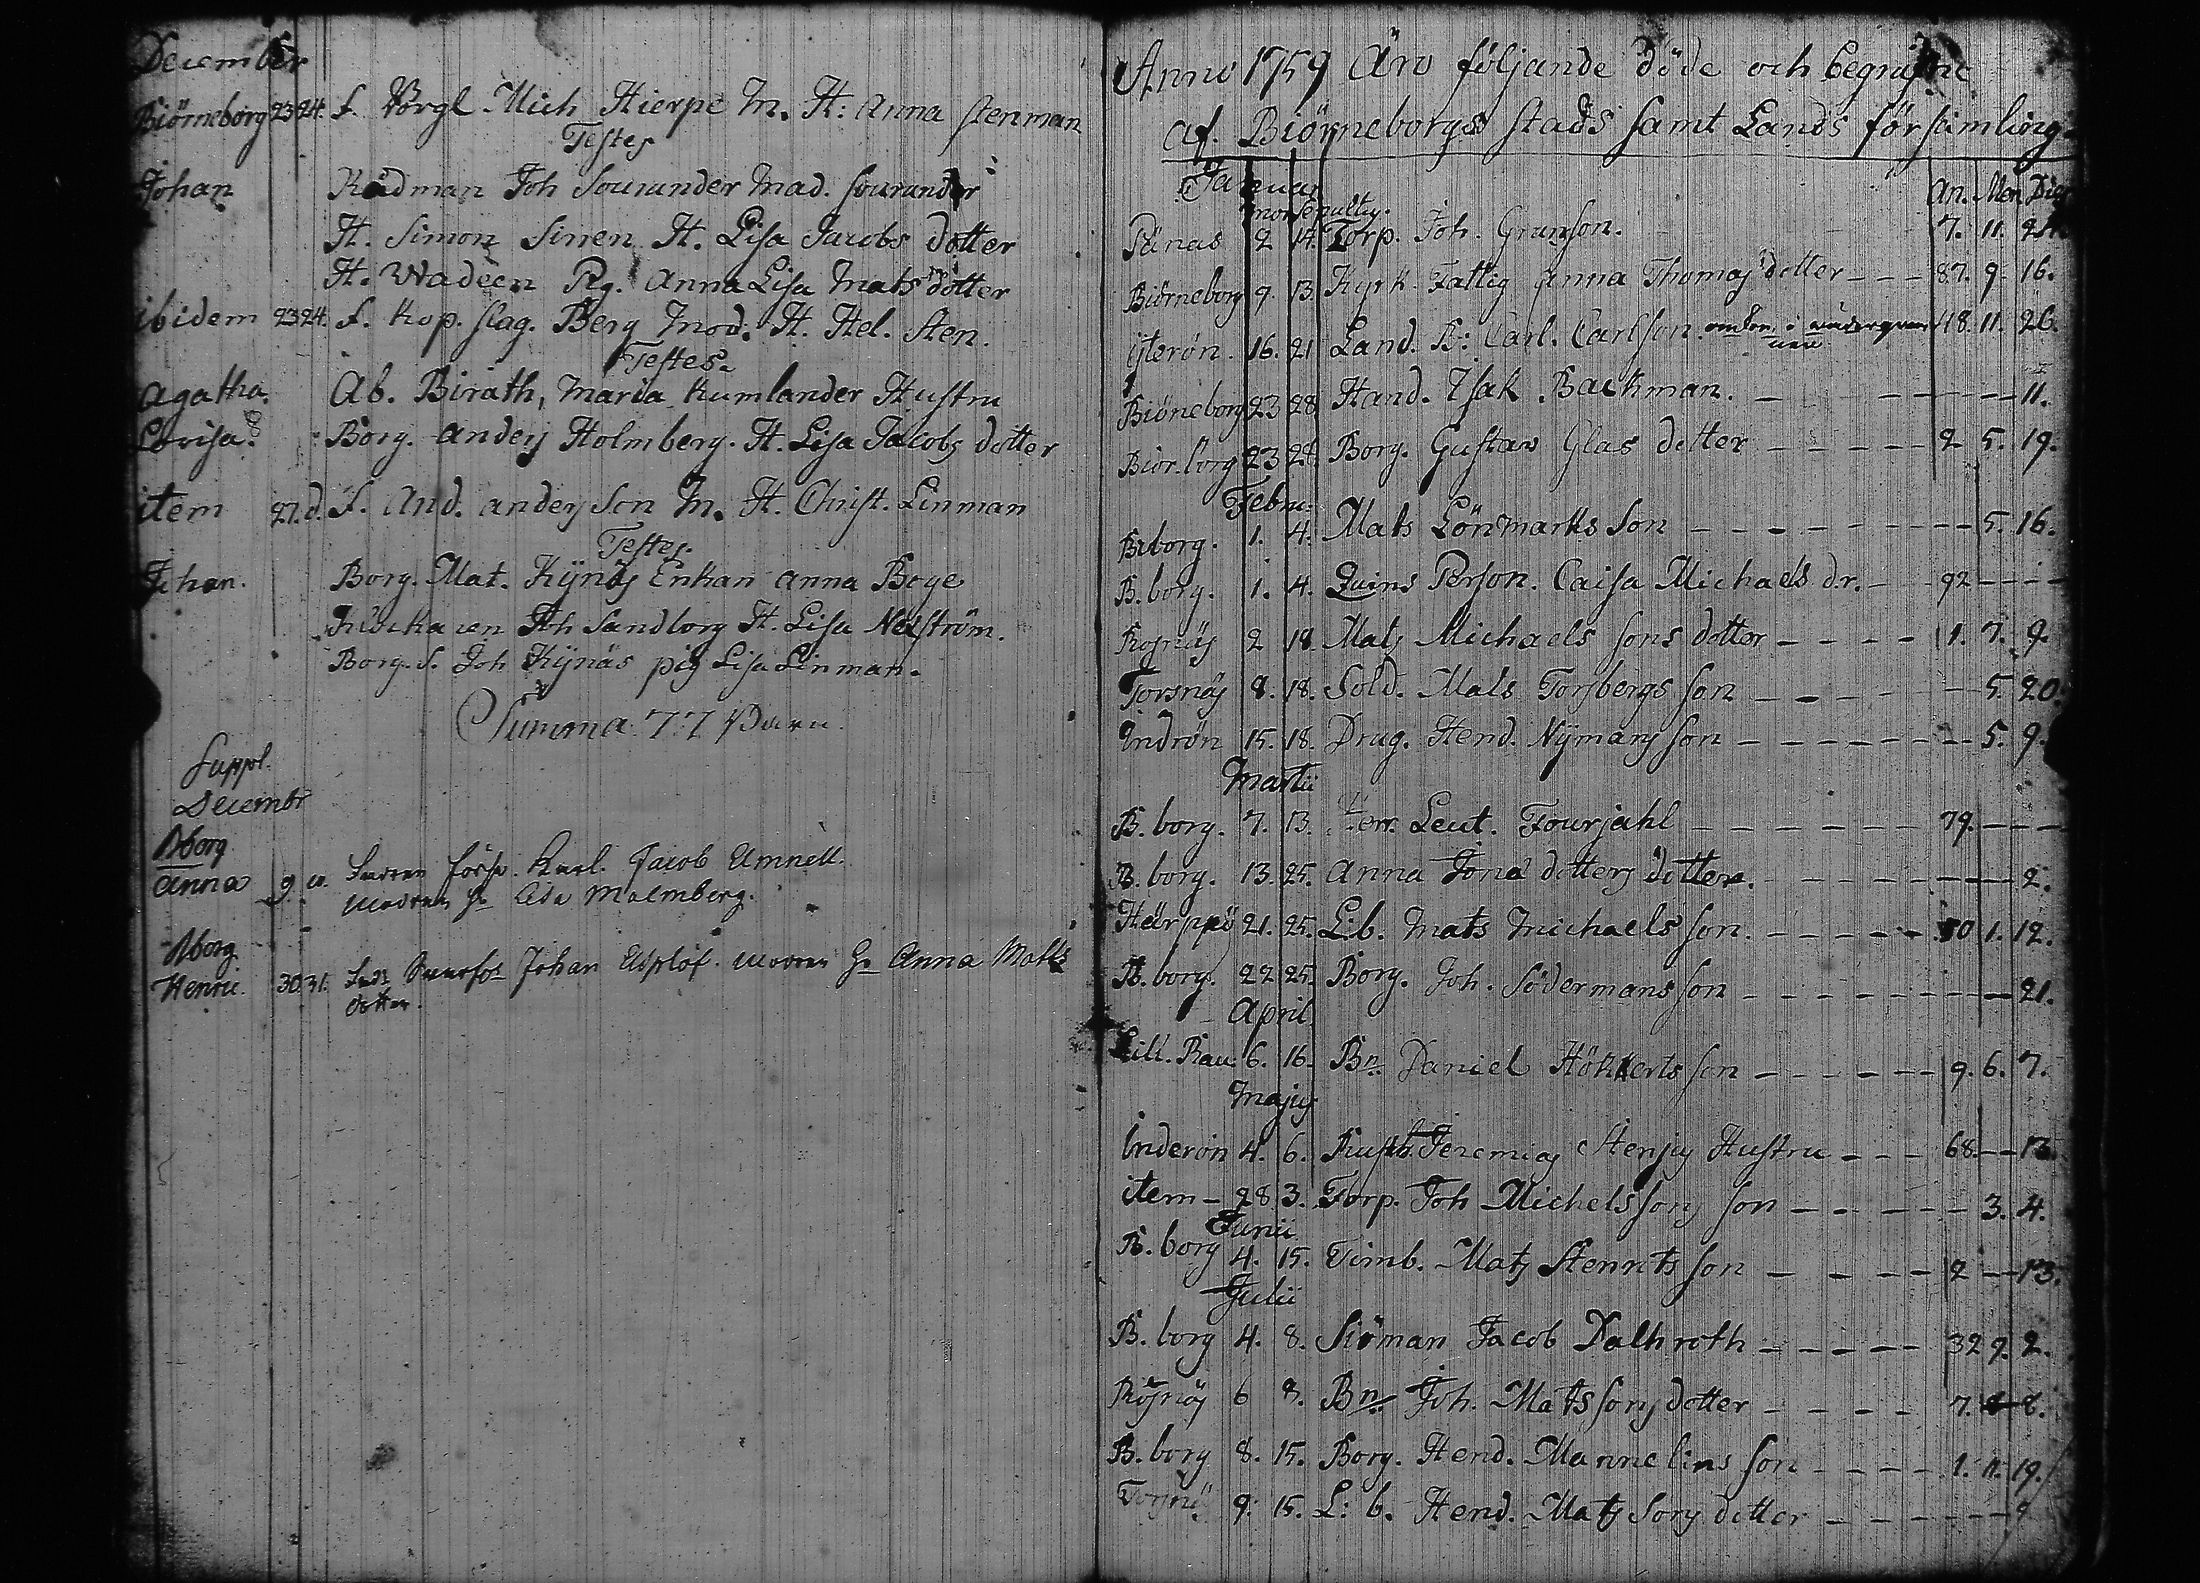 December
Biörneborg 23 24. f. Borgl. Mich Hierpe M. H: Anna Stenman
Testes
Johan Rådman Joh Sourander Mad. Sourander
H. Simon Sinen H. Lisa Jacobs dotter
H. Wadeen Pig. Anna Lisa Mats dotter
ibidem 23 24. f. Kop. slag. Berg Mod. H. Hel. Sten.
Testes.
Agatha. Ab. Birath, Maria Kumlander Hustru
Lovisa. Borg. Anders Holmberg. H. Lisa Jacobs dotter
item 27. d. f. And. anders Son M. H. Christ. Linman
Testes.
Johan. Borg. Mat. Kynäs Enkan Anna Boge
Joh Sandborg H. Lisa Neiström.
Borg. S. Joh Kynäs pig Lisa Linman.
Summa 77 Barn
Suppl.
Decembr
Bborg
Anna 9 10. Jacob Umnell.
modren Malmberg.
Bborg
Henric. 30. 31. Johan Asplöf. modren Anna Matts
dotter.
Anno 1759 Äro följande döde och begrafne
af. Biörneborgs stads samt Lands församling.
Januar An. Men Dier
mor sepultus.
Pänas 2 14. Torp. Joh. Granson. 7. 11. 24
Biörneborg 9. 13. Kyrk. Fattig Anna Thomas dotter - - - 87. 9. 16.
ÿterön. 16. 21 Land. B: Carl. Carlson. 48. 11. 26.
Biöneborg 23 28 Hand. Isak Backman. - - - - 11.
Biör.borg 23 28. Borg. Gustav Glas dotter - - - - 2 5. 19.
Febru:
B.borg. 1. 4. Mats Lönmarks Son - - - - 5. 16.
B.borg. 1. 4. Qvins Person. Caisa Michaels dr. - - 92 - - -
Rosnäs 2 18. Mats Michaels sons dotter - - - - 1. 7. 9.
Torsnäs 8. 18. Sold. Mats Torsbergs son - - - - 5. 20.
Indrön 15. 18. Drag. Hend. Nÿmans son - - - - 5. 9.
Martii
B. borg. 7. 13. Herr. Leut. Fourjahl - - - - 79. - - -
B. borg. 13. 25. Anna Jona dotters dotter. - - - - 2.
Härppö 21. 25. L.b. Mats Michaels son. - - - - 50 1. 12.
B. borg. 22 25. Borg. Joh. Södermans son - - - - 21.
April
Lill. Rau 6. 16. Bn. Daniel Hökkerts son - - - - 9. 6. 7.
Majus
Inderön 4. 6. Rusth. Jeremias Hustru - - - 68. - - 13.
item - 28 3. Torp. Joh Michelssons son - - - - 3. 4.
Junii
B. borg 4. 15. Timb. Mats Stenrits son - - - - 2 - - 13.
Julii
B. borg 4. 8. Siöman Jacob Dalhroth - - - - 32 9. 2.
Rosnäs 6 8. Bn. Joh. Matssons dotter - - - - 7. 8.
B. borg 8. 15. Borg. Hend. Mannelins son - - - - 1. 11. 19.
Torsnäs 9. 15. L: b. Hend. Mats sons dotter - - - - 9